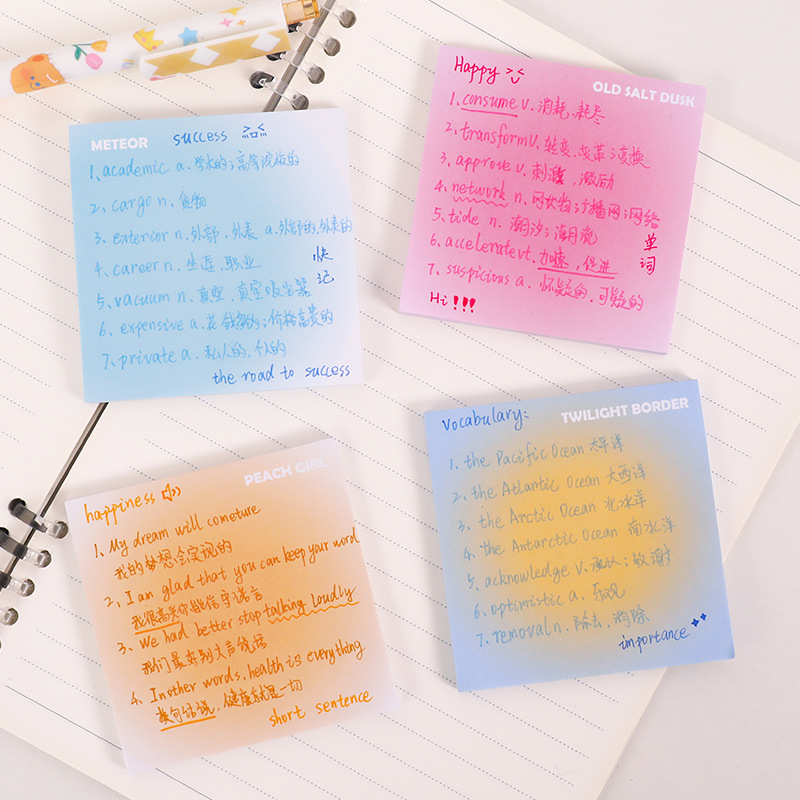 METEOR success
1、academic a. 学术的；高等院校的
2、cargo n. 货物
3、exterior n. 外部、外表 a. 外部的、外表的
4、career n. 生涯、职业
5、vacuum n. 真空、真空吸尘器
6、expensive a. 花钱多的；价格高贵的
7、private a. 私人的、个人的
快记
the road to success
Happy
OLD SALT DUSK
1、consume v. 消耗、耗尽
2、transform v. 转变、变革；变换
3、approve v. 刺激、激励
4、network n. 网状物；广播网；网络
5、tide n. 潮汐；潮流
6、accelerate vt. 加速、促进
7、suspicious a. 怀疑的、可疑的
单词
Hi !!!
PEACH GIRL
happiness
1、My dream will cometure
我的梦想会实现的
2、I am glad that you can keep your word
我很高兴你能信守诺言
3、We had better stop talking loudly
我们最好别大声说话
4、In other words, health is everything
换句话说，健康就是一切
short sentence
Vocabulary:
TWILIGHT BORDER
1、the Pacific Ocean 太平洋
2、the Atlantic Ocean 大西洋
3、the Arctic Ocean 北冰洋
4、the Antarctic Ocean 南冰洋
5、acknowledge v. 承认；致谢
6、optimistic a. 乐观
7、removal n. 除去、消除
importance